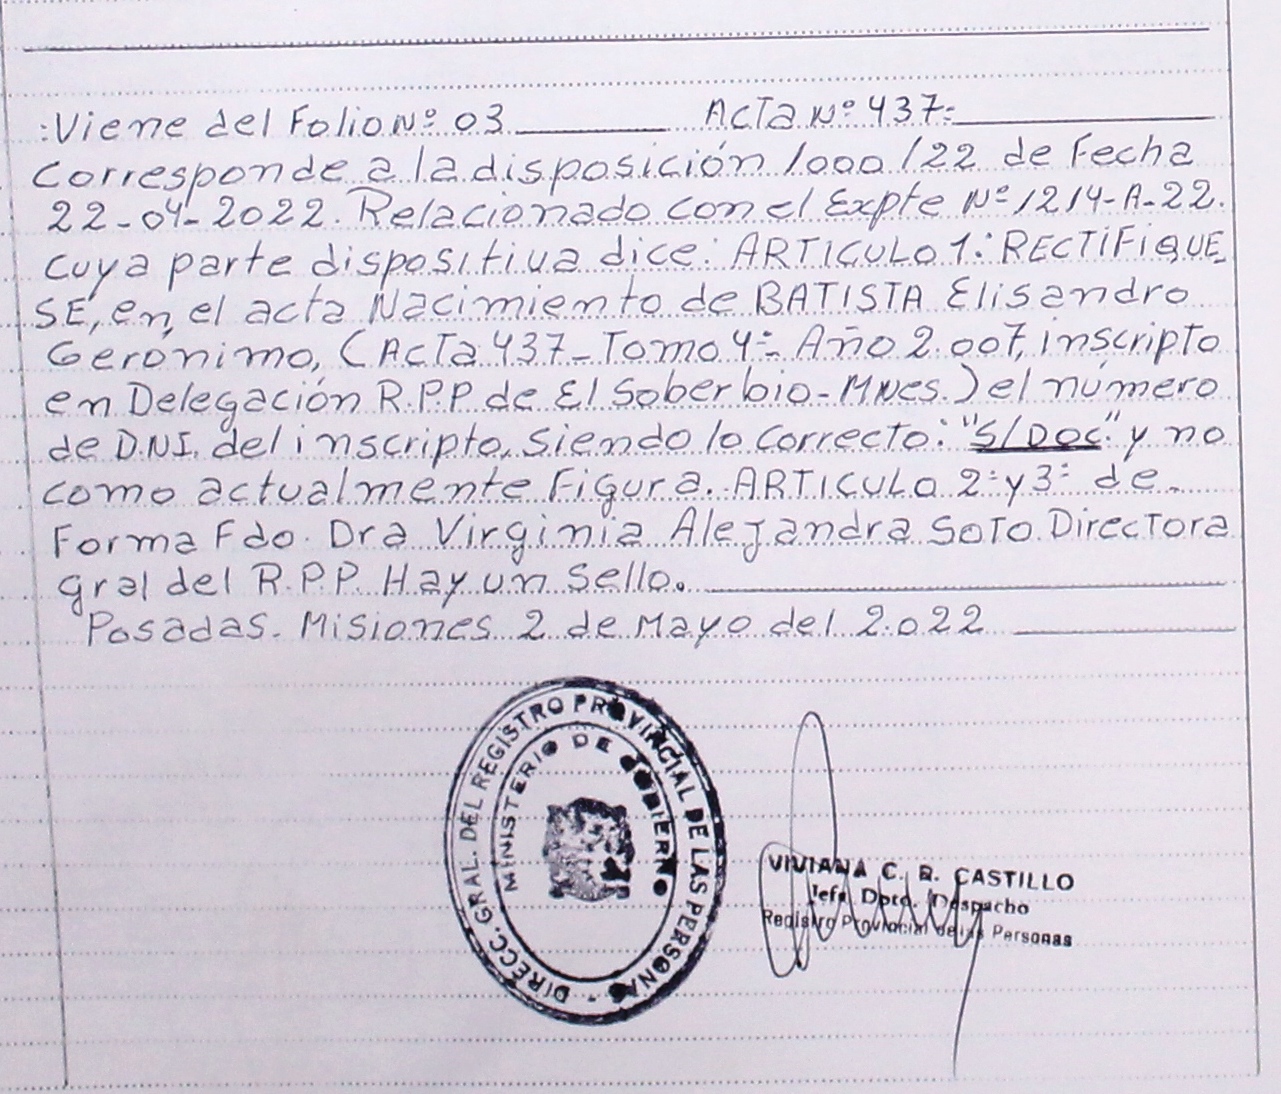 :Viene del Folio Nº 03 Acta Nº 437=
Corresponde a la disposición 1000/22 de Fecha
22-04-2022. Relacionado con el Expte Nº 1214-A-22.
cuya parte dispositiva dice: ARTICULO 1: RECTIFIQUE
SE, en el acta Nacimiento de BATISTA Elisandro
Gerónimo, (Acta 437-Tomo 4º- Año 2.007, inscripto
en Delegación R.P.P de El Soberbio-MNES.) el número
de D.N.I. del inscripto, siendo lo correcto: "S/DOC" y no
como actualmente Figura. ARTICULO 2º y 3º de
Forma Fdo. Dra Virginia Alejandra SOTO Directora
gral del R.P.P. Hay un Sello.
Posadas. Misiones 2 de Mayo del 2.022
DIRECC. GRAL. DEL REGISTRO PROVINCIAL DE LAS PERSONAS -
MINISTERIO DE GOBIERNO
VIVIANA C. B. CASTILLO
Jefa Dpto. Despacho
Registro Provincial de las Personas